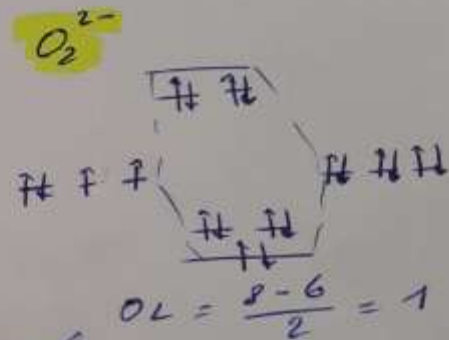 O₂²⁻
OL = 8 - 6 / 2 = 1